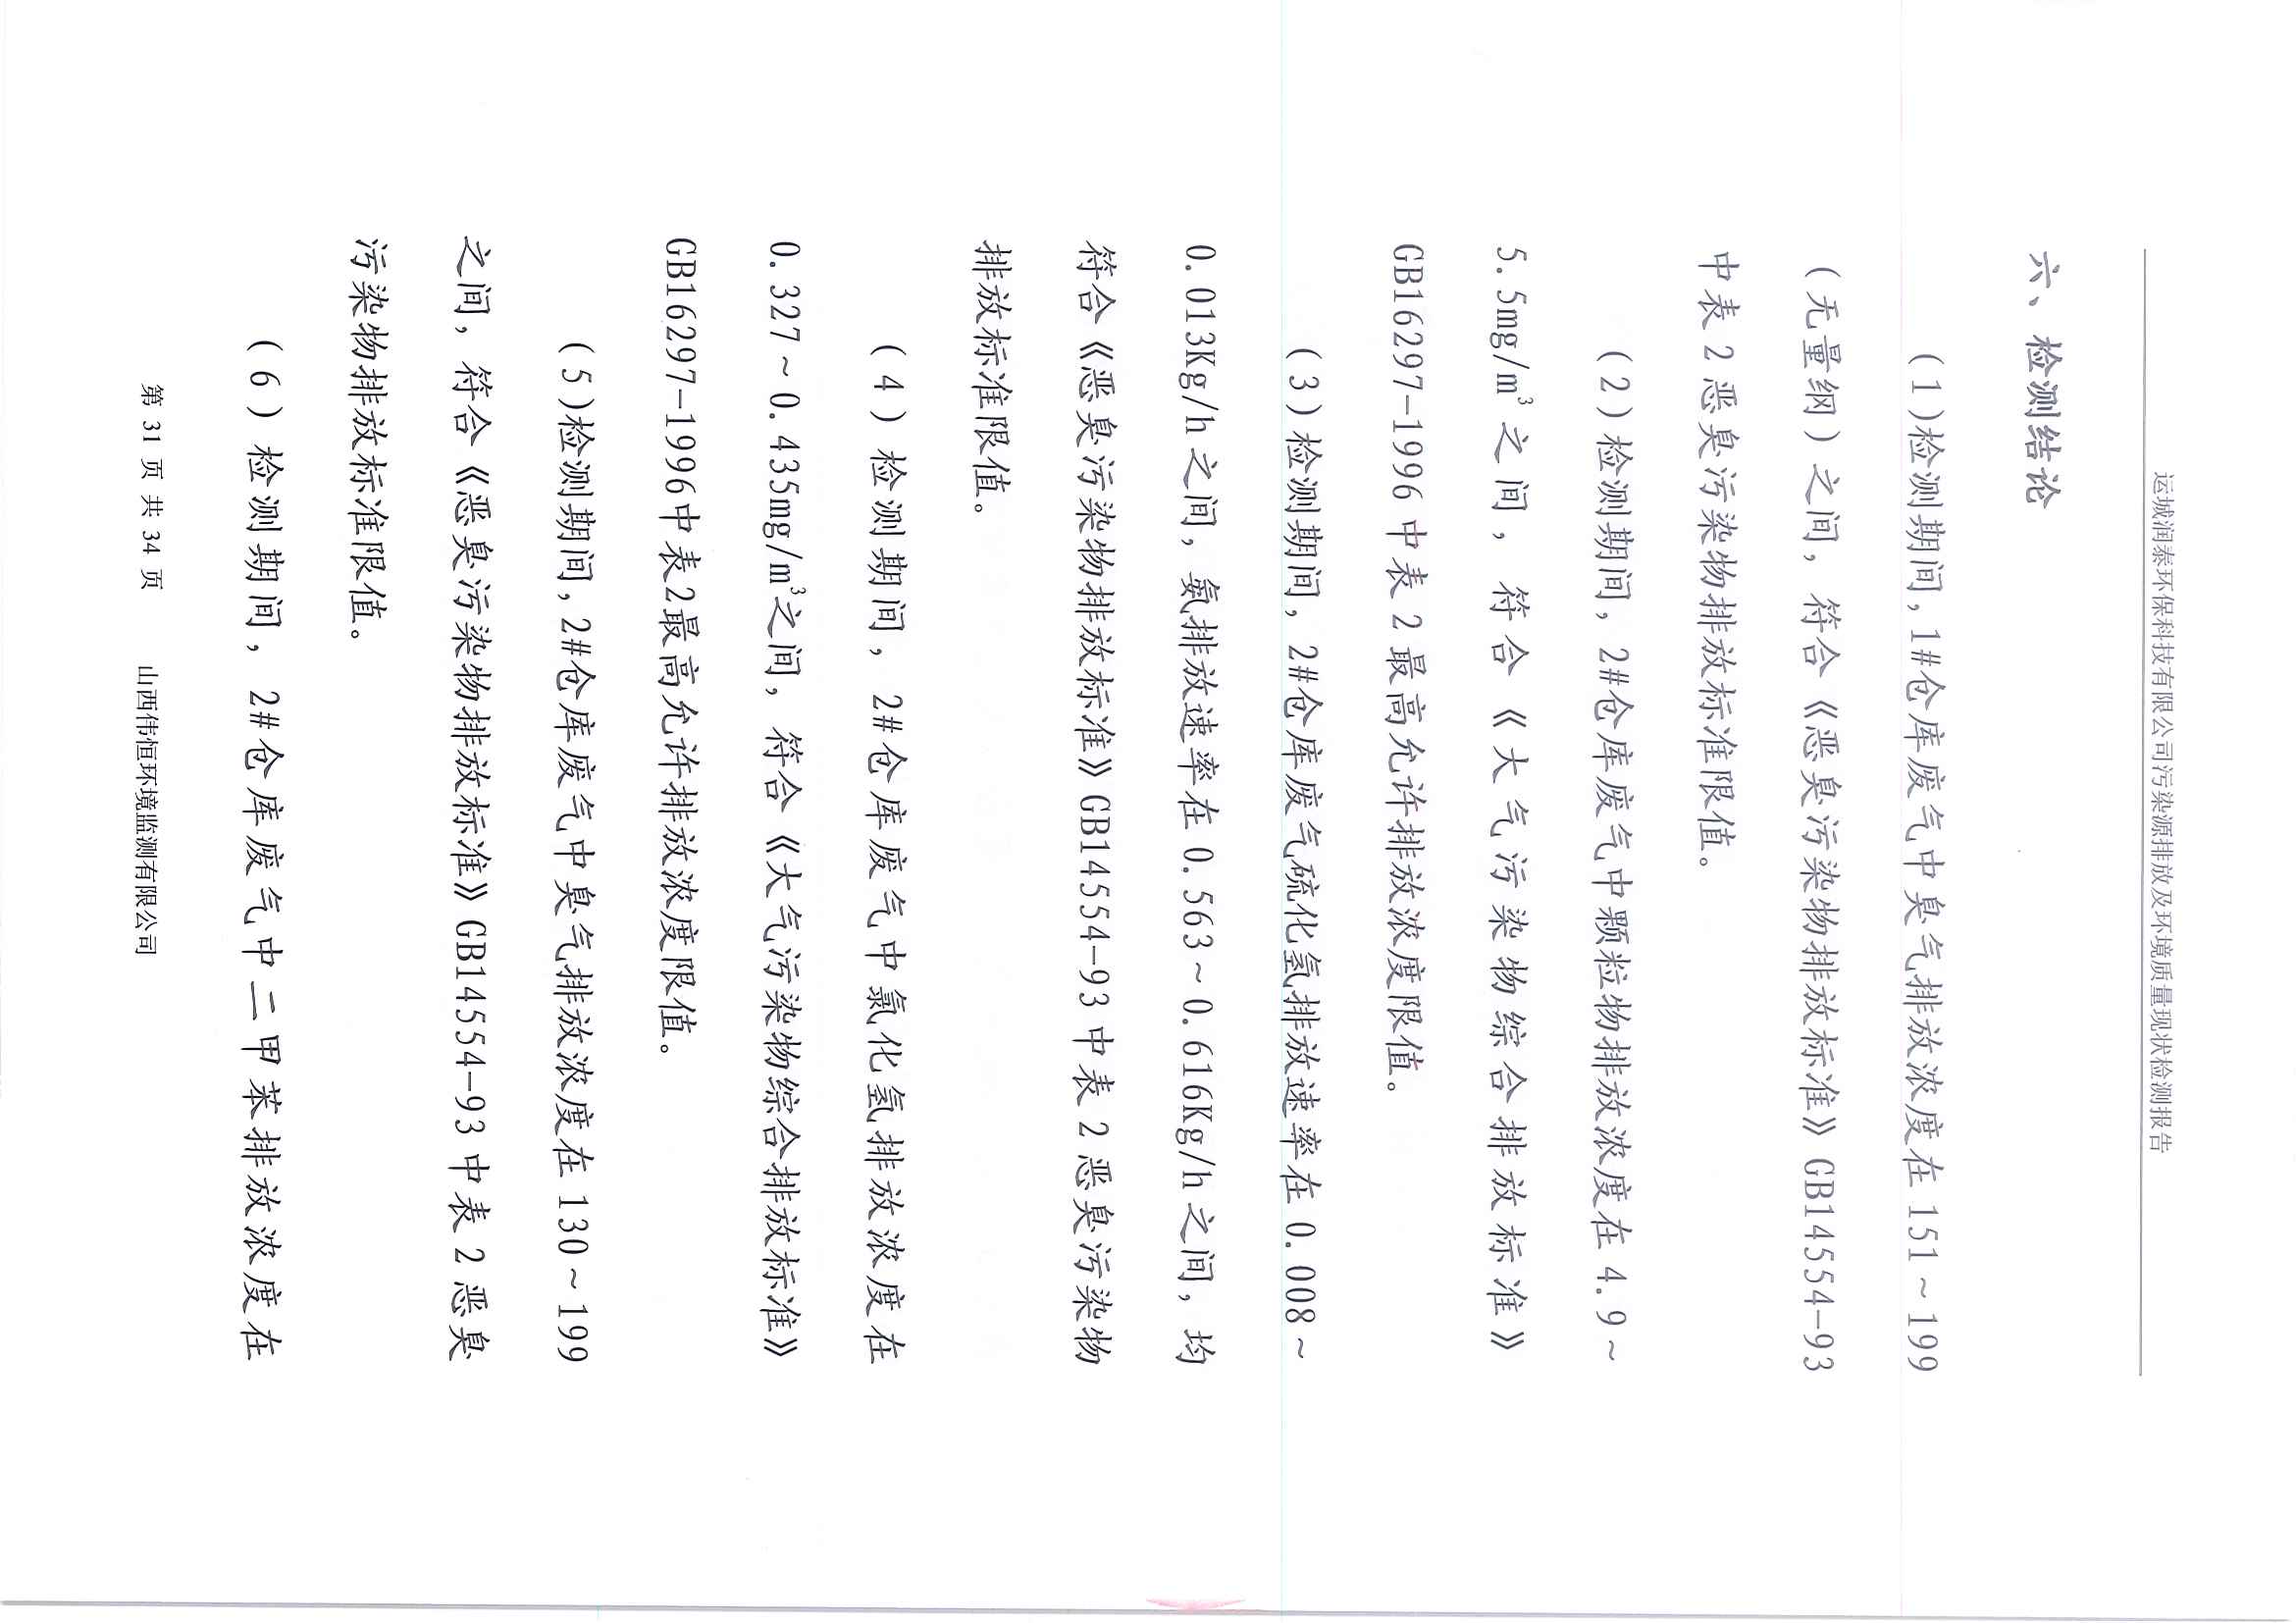 运城润泰环保科技有限公司污染源排放及环境质量现状检测报告
六、检测结论
(1)检测期间,1#仓库废气中臭气排放浓度在 151~199
(无量纲)之间,符合《恶臭污染物排放标准》GB14554-93
中表 2 恶臭污染物排放标准限值。
(2)检测期间,2#仓库废气中颗粒物排放浓度在 4.9~
5.5mg/m³之间,符合《大气污染物综合排放标准》
GB16297-1996 中表 2 最高允许排放浓度限值。
(3)检测期间,2#仓库废气硫化氢排放速率在 0.008~
0.013Kg/h 之间,氨排放速率在 0.563~0.616Kg/h 之间,均
符合《恶臭污染物排放标准》GB14554-93 中表 2 恶臭污染物
排放标准限值。
(4)检测期间,2#仓库废气中氯化氢排放浓度在
0.327~0.435mg/m³之间,符合《大气污染物综合排放标准》
GB16297-1996中表2最高允许排放浓度限值。
(5)检测期间,2#仓库废气中臭气排放浓度在 130~199
之间,符合《恶臭污染物排放标准》GB14554-93 中表 2 恶臭
污染物排放标准限值。
(6)检测期间,2#仓库废气中二甲苯排放浓度在
第 31 页 共 34 页 山西伟恒环境监测有限公司